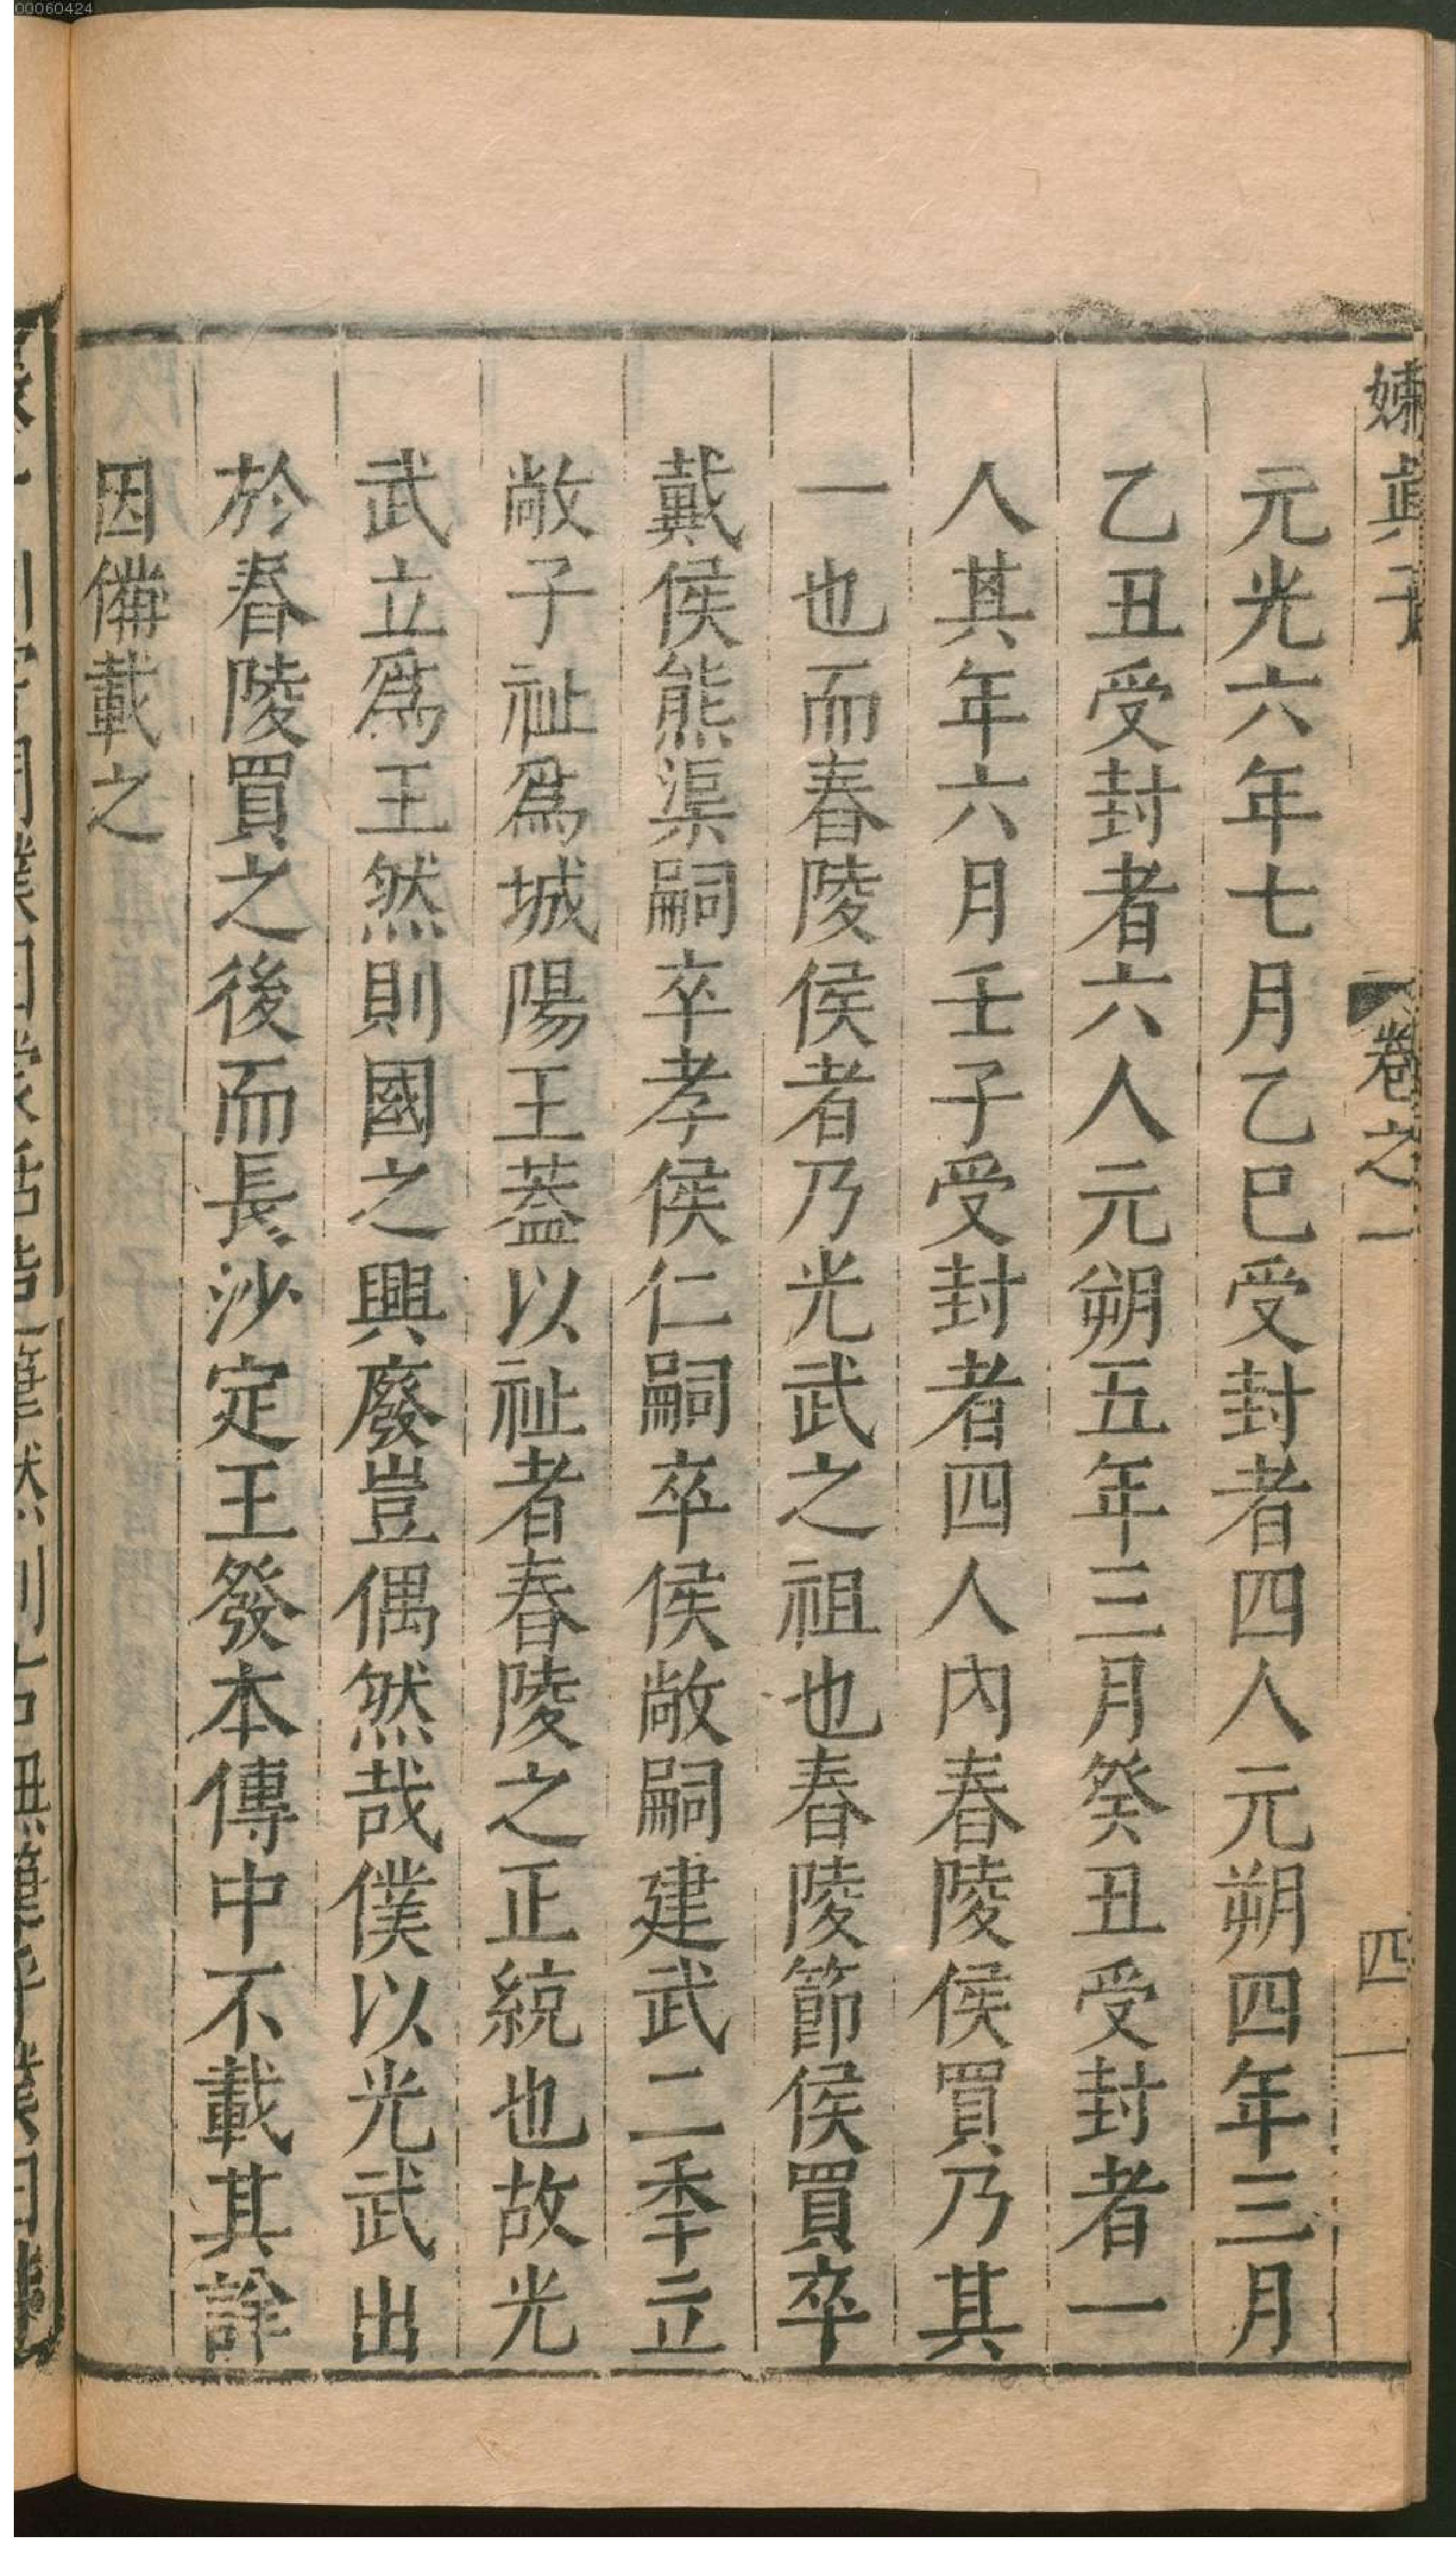 00060424
嬾真子 卷之一 四
元光六年七月乙巳受封者四人元朔四年三月
乙丑受封者六人元朔五年三月癸丑受封者一
人其年六月壬子受封者四人內舂陵侯買乃其
一也而舂陵侯者乃光武之祖也舂陵節侯買卒
戴侯熊渠嗣卒孝侯仁嗣卒侯敞嗣建武二秊立
敞子祉爲城陽王葢以祉者舂陵之正統也故光
武立爲王然則國之興廢豈偶然哉僕以光武出
於舂陵買之後而長沙定王發本傳中不載其詳
因備載之